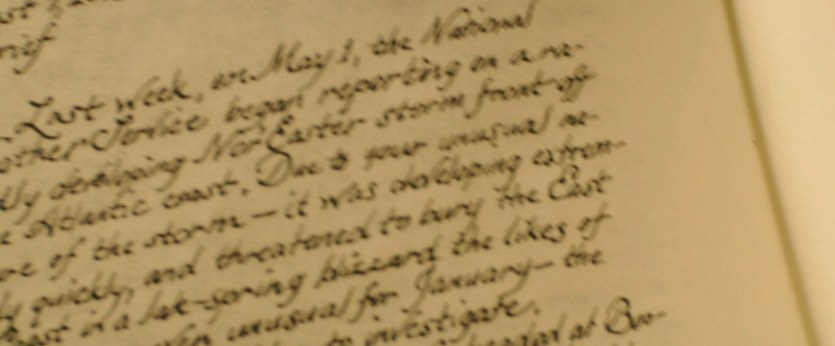 rief
Last week, on May 1, the National
other Service began reporting on a ra-
dly developing Nor'Easter storm front off
e Atlantic coast. Due to your unusual na-
re of the storm—it was developing extrem-
ly quickly, and threatened to bury the East
oast in a late-spring blizzard the likes of
when unusual for January—the
to investigate.
at Boo-